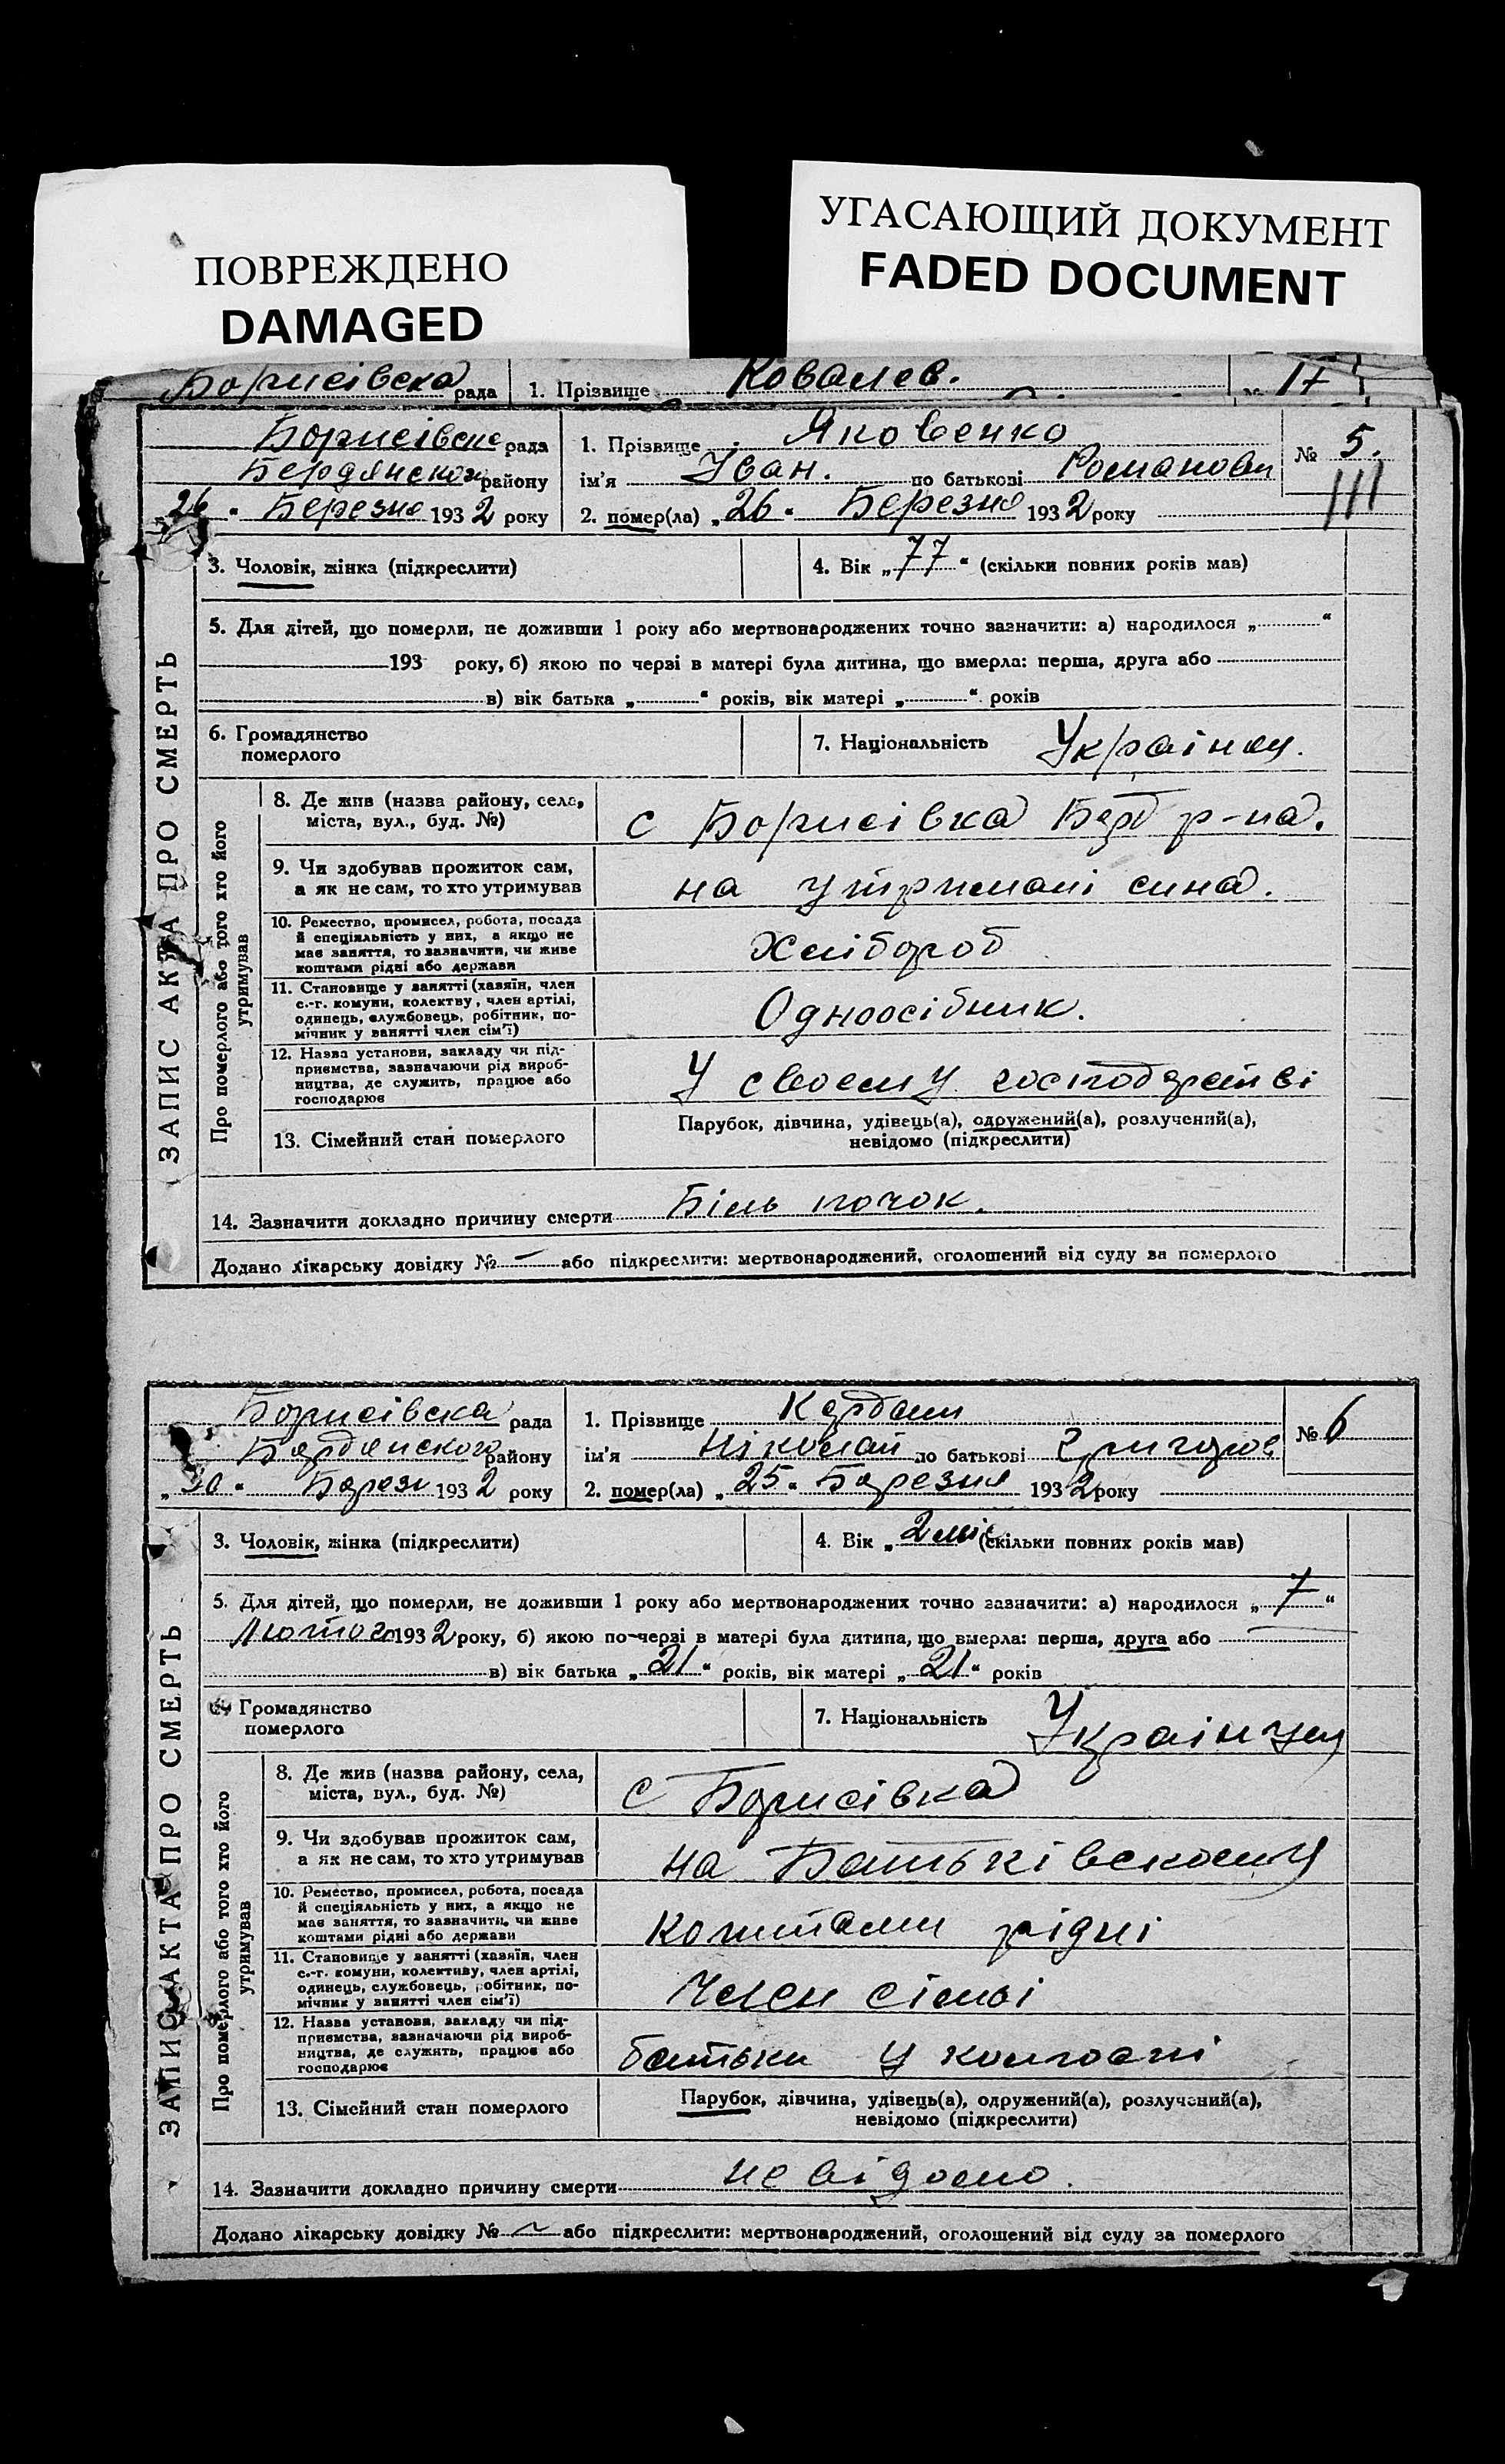 ПОВРЕЖДЕНО
DAMAGED
УГАСАЮЩИЙ ДОКУМЕНТ
FADED DOCUMENT
Борисівска рада 1. Прізвище Ковалев. № 17
Борисівске рада 1. Прізвище Яковенко № 5.
Бердянсков району ім'я Іван. по батькові Романови III
26 " Березня 1932 року 2. помер(ла) „26" Березня 1932 року
3. Чоловік, жінка (підкреслити) 4. Вік „77" (скільки повних років мав)
5. Для дітей, що померли, не доживши 1 року або мертвонароджених точно зазначити: а) народилося „ "
193 року, б) якою по черзі в матері була дитина, що вмерла: перша, друга або
в) вік батька „ " років, вік матері „ " років
6. Громадянство померлого 7. Національність Українец.
ЗАПИС АКТА ПРО СМЕРТЬ
Про померлого або того хто його утримував
8. Де жив (назва району, села, міста, вул., буд. №) с Борисівка Берд р-на.
9. Чи здобував прожиток сам, а як не сам, то хто утримував на утримані сина.
10. Ремество, промисел, робота, посада й спеціяльність у них, а якщо не має заняття, то зазначити, чи живе коштами рідні або держави Хлібороб
11. Становище у занятті (хазяїн, член с.-г. комуни, колективу, член артілі, одинець, службовець, робітник, помічник у занятті член сім'ї) Одноосібник.
12. Назва установи, закладу чи підприємства, зазначаючи рід виробництва, де служить, працює або господарює У своему господарстві
13. Сімейний стан померлого Парубок, дівчина, удівець(а), одружений(а), розлучений(а), невідомо (підкреслити)
14. Зазначити докладно причину смерти Біль почок.
Додано лікарську довідку № – або підкреслити: мертвонароджений, оголошений від суду за померлого
Борисівска рада 1. Прізвище Кардаш № 6
Бердянского району ім'я Ніколай по батькові Григоров
„30" Берези 1932 року 2. помер(ла) „25" Березня 1932 року
3. Чоловік, жінка (підкреслити) 4. Вік „2 міс (скільки повних років мав)
5. Для дітей, що померли, не доживши 1 року або мертвонароджених точно зазначити: а) народилося „7"
Лютого 1932 року, б) якою по черзі в матері була дитина, що вмерла: перша, друга або
в) вік батька „21" років, вік матері „21" років
6. Громадянство померлого 7. Національність Українец
ЗАПИС АКТА ПРО СМЕРТЬ
Про померлого або того хто його утримував
8. Де жив (назва району, села, міста, вул., буд. №) с Борисівка
9. Чи здобував прожиток сам, а як не сам, то хто утримував на Батьківскому
10. Ремество, промисел, робота, посада й спеціяльність у них, а якщо не має заняття, то зазначити, чи живе коштами рідні або держави Коштами рідні
11. Становище у занятті (хазяїн, член с.-г. комуни, колективу, член артілі, одинець, службовець, робітник, помічник у занятті член сім'ї) Член сімьі
12. Назва установи, закладу чи підприємства, зазначаючи рід виробництва, де служить, працює або господарює батьки у колгоспі
13. Сімейний стан померлого Парубок, дівчина, удівець(а), одружений(а), розлучений(а), невідомо (підкреслити)
14. Зазначити докладно причину смерти невідомо.
Додано лікарську довідку № ~ або підкреслити: мертвонароджений, оголошений від суду за померлого